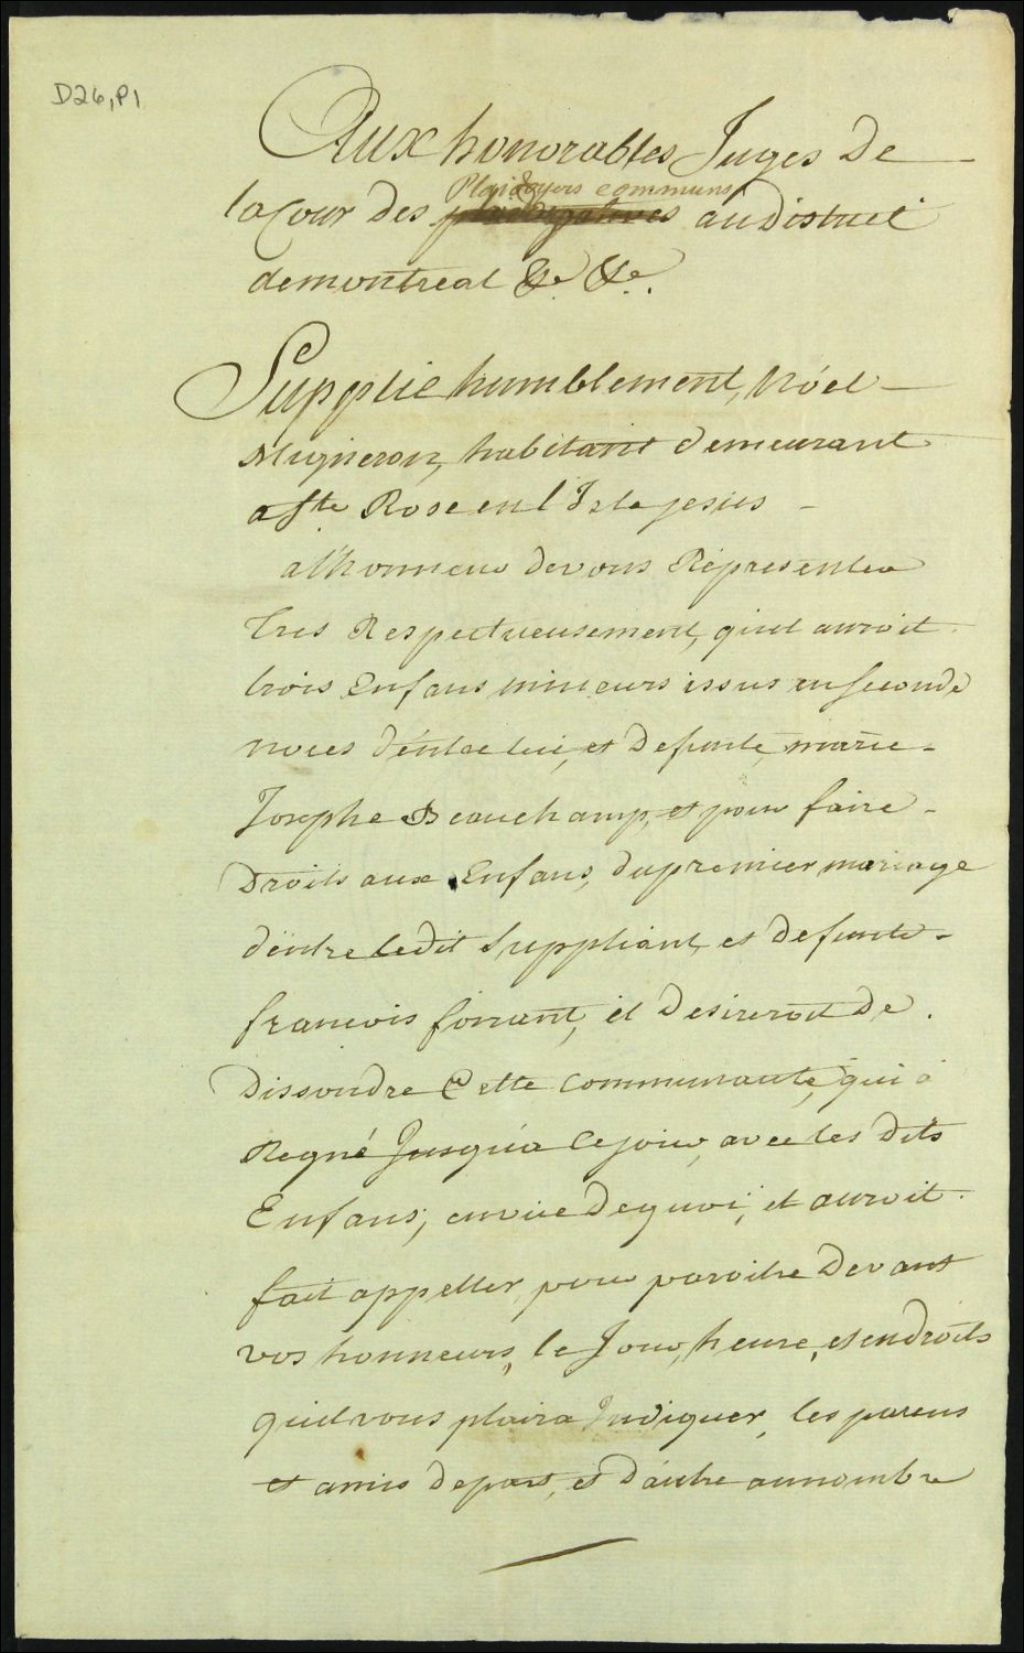 D26, P1
Aux honorables Juges De
la Cour des Plaidoyers communs au District
de montreal &c &c.
Supplie humblement, Nóel
Migneron, habitant demeurant
a Ste Rose en l'Isle jesus
a l'honneur de vous Répresenter
Tres Respectueusement, quil auroit
trois Enfans mineurs issus en seconde
noces d'éntre lui, et Defunte, marie
Josephe Beauchamp, et pour faire
Droits aux Enfans, du premier mariage
d'entre ledit Suppliant, et defunte
francois forrant, il Desireroit De
Dissoudre Cette Communauté, qui a
Regné Jusqu'a Ce jour, avec les Dits
Enfans; en vüe De quoi, il auroit
fait appeller, pour paroitre Devant
vos honneurs, le Jour, heure, et endroits
quil vous plaira Indiquer, les parens
et amis de part, et d'autre au nombre